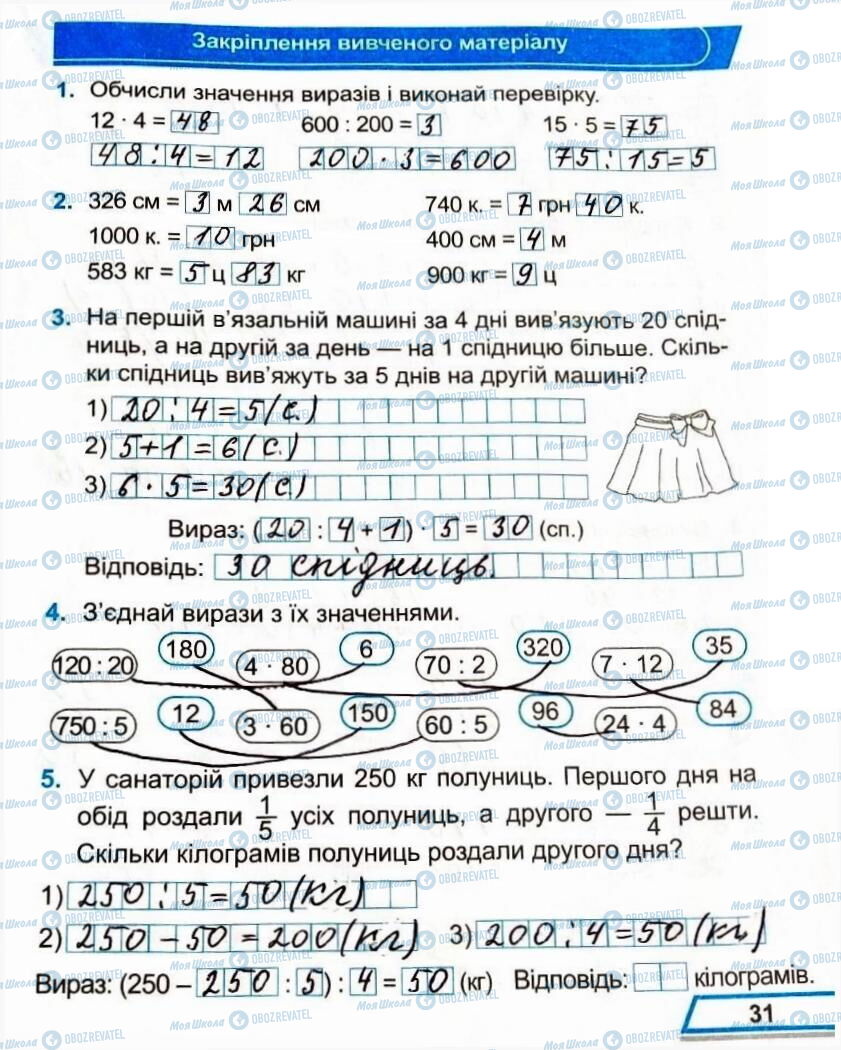 Закріплення вивченого матеріалу
1. Обчисли значення виразів і виконай перевірку.
12 · 4 = 48 600 : 200 = 3 15 · 5 = 75
48 : 4 = 12 200 · 3 = 600 75 : 15 = 5
2. 326 см = 3 м 26 см 740 к. = 7 грн 40 к.
1000 к. = 10 грн 400 см = 4 м
583 кг = 5 ц 83 кг 900 кг = 9 ц
3. На першій в'язальній машині за 4 дні вив'язують 20 спід-
ниць, а на другій за день — на 1 спідницю більше. Скіль-
ки спідниць вив'яжуть за 5 днів на другій машині?
1) 20 : 4 = 5 (с.)
2) 5 + 1 = 6 (с.)
3) 6 · 5 = 30 (с)
Вираз: (20 : 4 + 1) · 5 = 30 (сп.)
Відповідь: 30 спідниць.
4. З'єднай вирази з їх значеннями.
120 : 20 180 4 · 80 6 70 : 2 320 7 · 12 35
750 : 5 12 3 · 60 150 60 : 5 96 24 · 4 84
5. У санаторій привезли 250 кг полуниць. Першого дня на
обід роздали 1/5 усіх полуниць, а другого — 1/4 решти.
Скільки кілограмів полуниць роздали другого дня?
1) 250 : 5 = 50 (кг)
2) 250 – 50 = 200 (кг) 3) 200 : 4 = 50 (кг)
Вираз: (250 – 250 : 5) : 4 = 50 (кг) Відповідь: кілограмів.
31